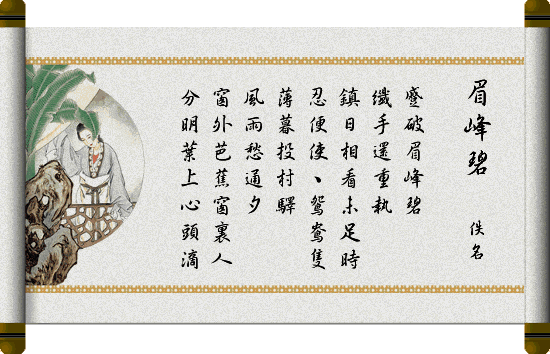 眉峰碧
佚名
蹙破眉峰碧
纖手還重執
鎮日相看未足時
忍便使、鴛鴦隻
薄暮投村驛
風雨愁通夕
窗外芭蕉窗裏人
分明葉上心頭滴